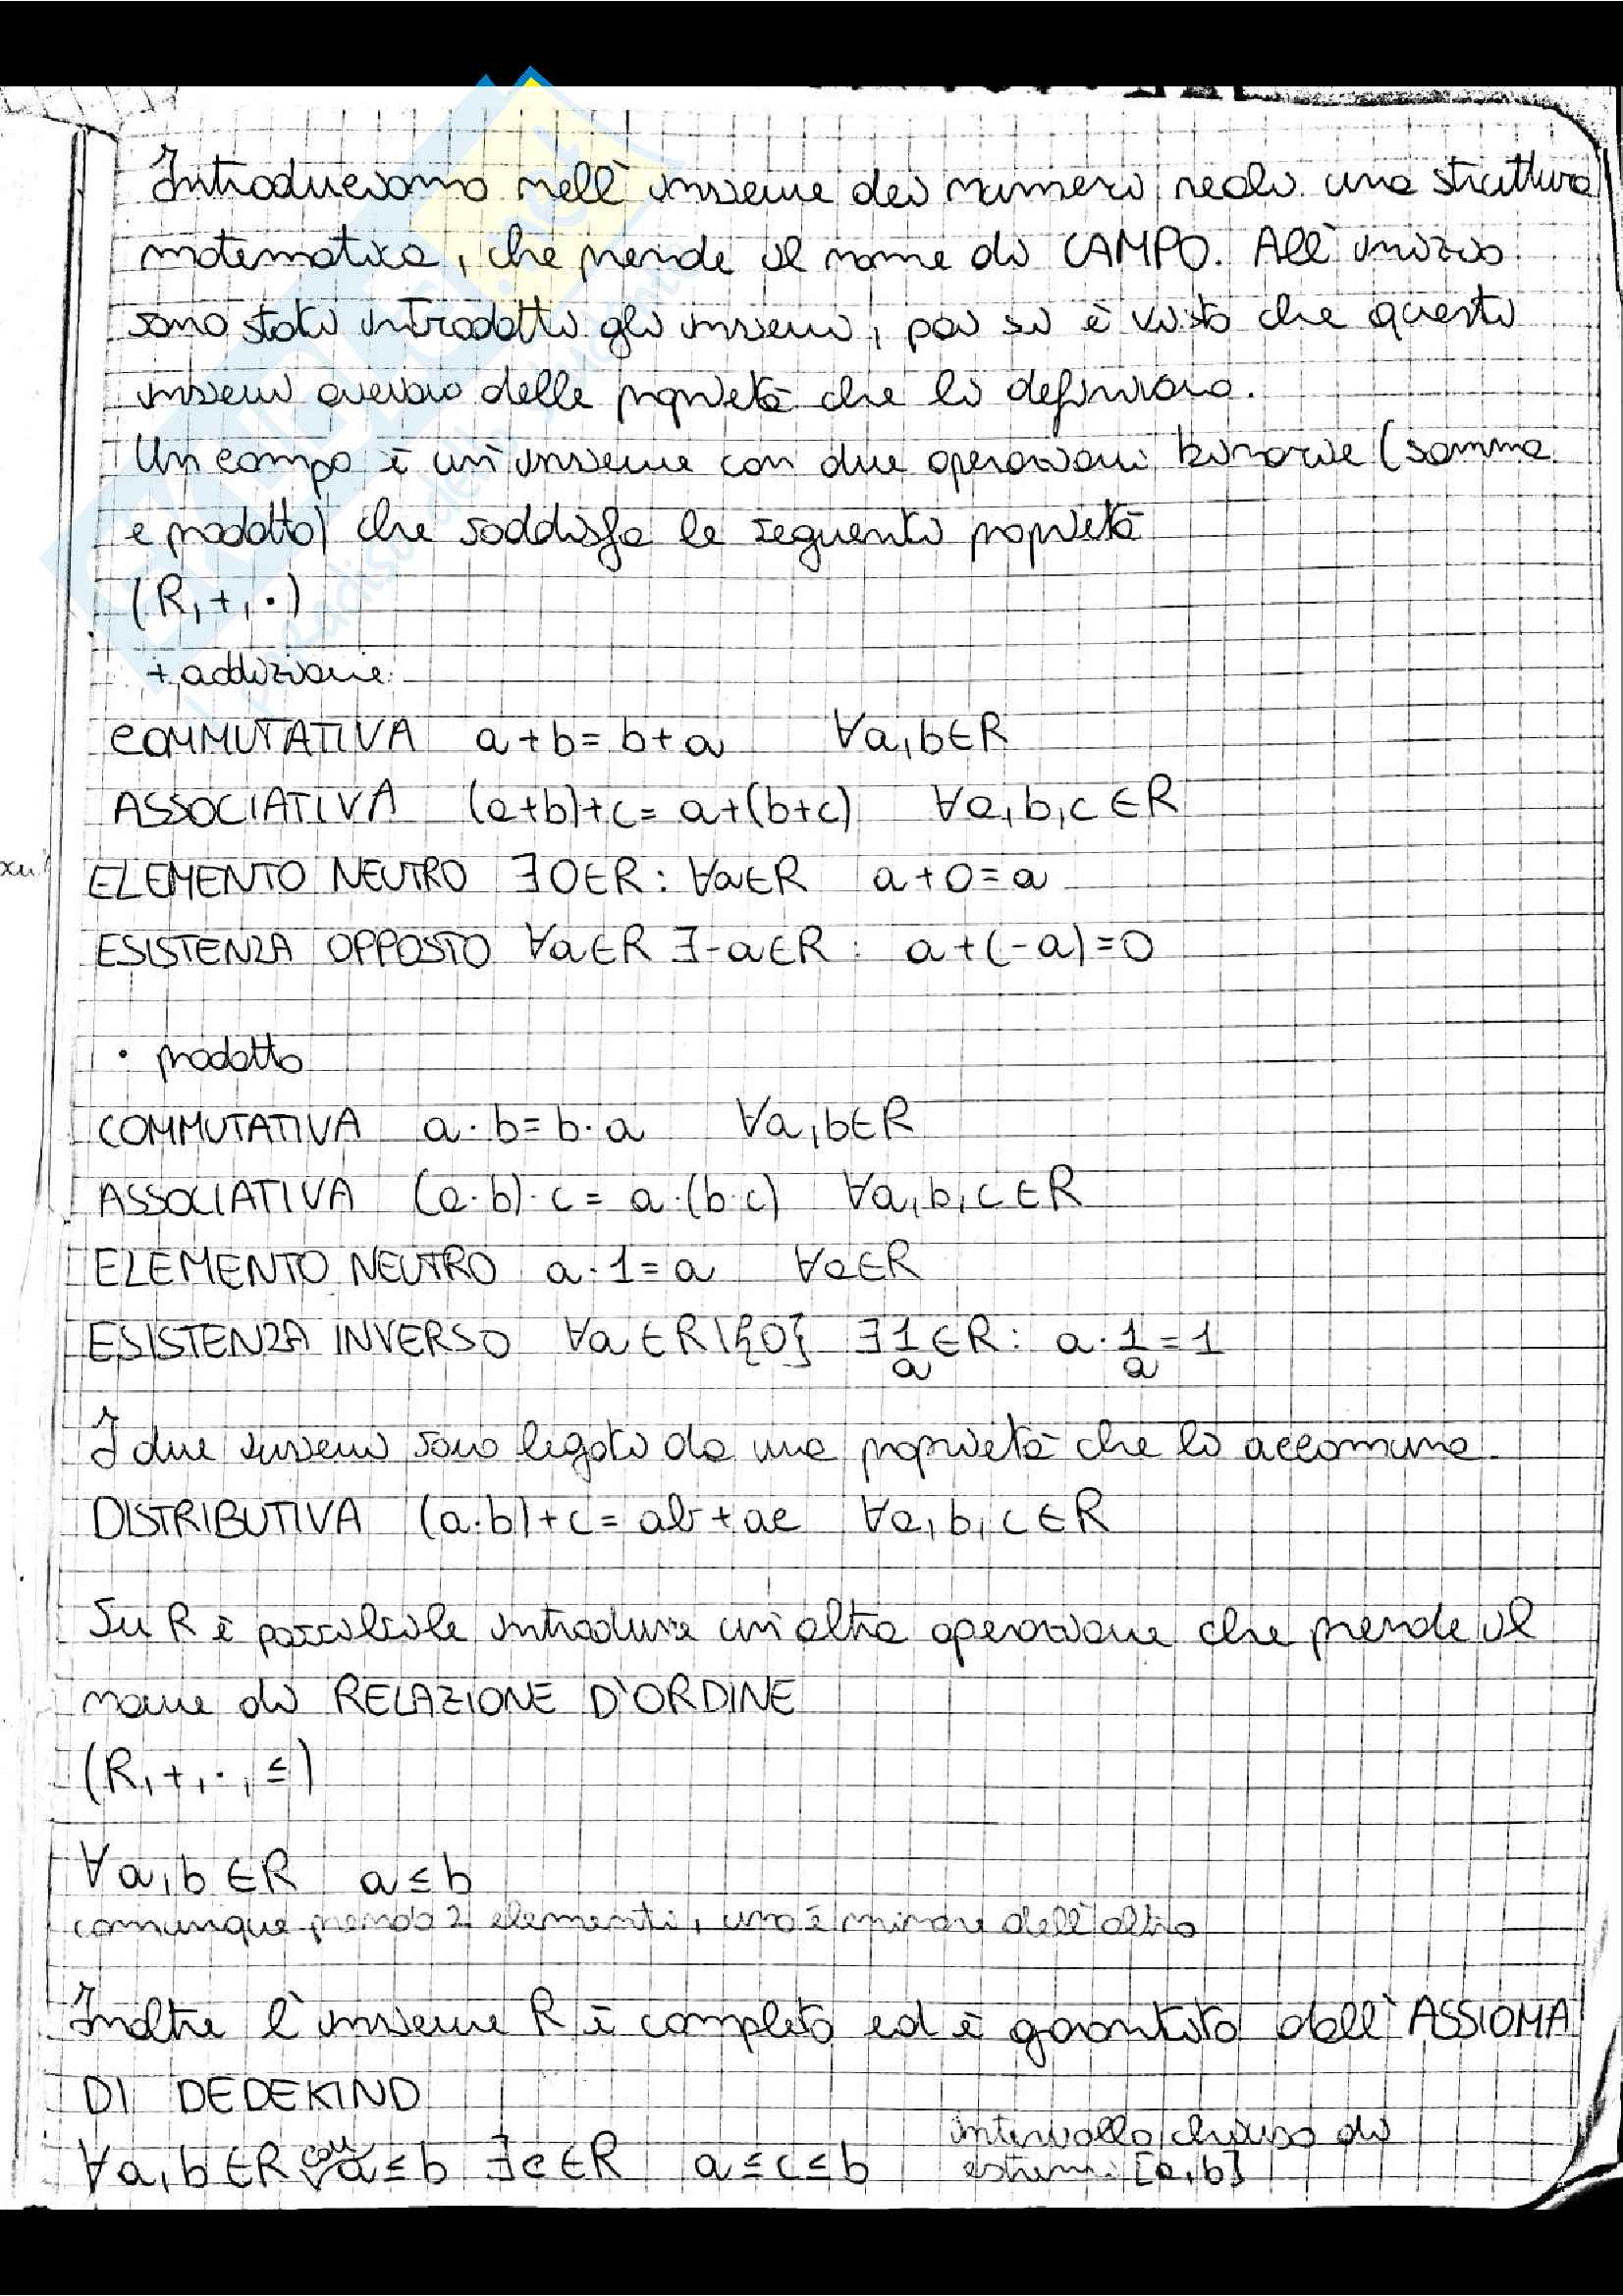 Introduciamo nell'insieme dei numeri reali una struttura
matematica, che prende il nome di CAMPO. All'inizio
sono stati introdotti gli insiemi, poi si è visto che questi
insiemi avevano delle proprietà che li definivano.
Un campo è un'insieme con due operazioni binarie (somma
e prodotto) che soddisfa le seguenti proprietà
(R, +, ·)
+ addizione
COMMUTATIVA a+b=b+a ∀a,b∈R
ASSOCIATIVA (a+b)+c= a+(b+c) ∀a,b,c∈R
ELEMENTO NEUTRO ∃0∈R: ∀a∈R a+0=a
ESISTENZA OPPOSTO ∀a∈R ∃-a∈R: a+(-a)=0
· prodotto
COMMUTATIVA a·b=b·a ∀a,b∈R
ASSOCIATIVA (a·b)·c= a·(b·c) ∀a,b,c∈R
ELEMENTO NEUTRO a·1=a ∀a∈R
ESISTENZA INVERSO ∀a∈R\{0} ∃1/a∈R: a·1/a=1
I due insiemi sono legati da una proprietà che li accomuna.
DISTRIBUTIVA (a·b)+c= ab+ac ∀a,b,c∈R
Su R è possibile introdurre un'altra operazione che prende il
nome di RELAZIONE D'ORDINE
(R, +, ·, ≤)
∀a,b∈R a≤b
comunque prendo 2 elementi, uno è minore dell'altro
Inoltre l'insieme R è completo ed è garantito dall'ASSIOMA
DI DEDEKIND
∀a,b∈R con a≤b ∃c∈R a≤c≤b intervallo chiuso di
estremi [a,b]